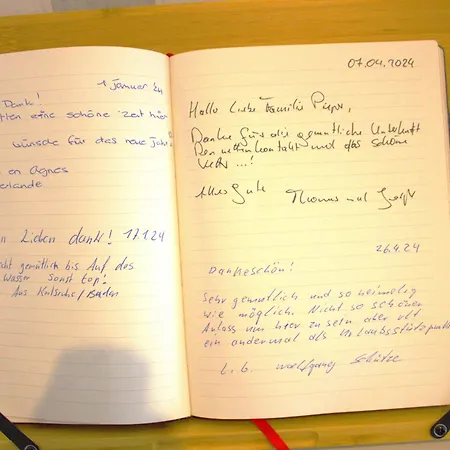 1 Januar 24
Dank!
tten eine schöne Zeit hier
wünsche für das neue Jahr
en Agnes
erlande
n Liden dank! 17.1.24
cht gemütlich bis Auf das
Wasser sonst top!
Aus Karlsruhe/Baden
07.04.2024
Hallo Liebe Familie
Danke für die gemütliche Unterkunft
Den netten Kontakt und das schöne
...!
Alles Gute
Thomas und
26.4.24
Dankeschön!
Sehr gemütlich und so heimelig
wie möglich. Nicht so schöner
Anlass um hier zu sein aber vlt
ein andermal als Urlaubsstützpunkt
L.G. Wolfgang Schütze